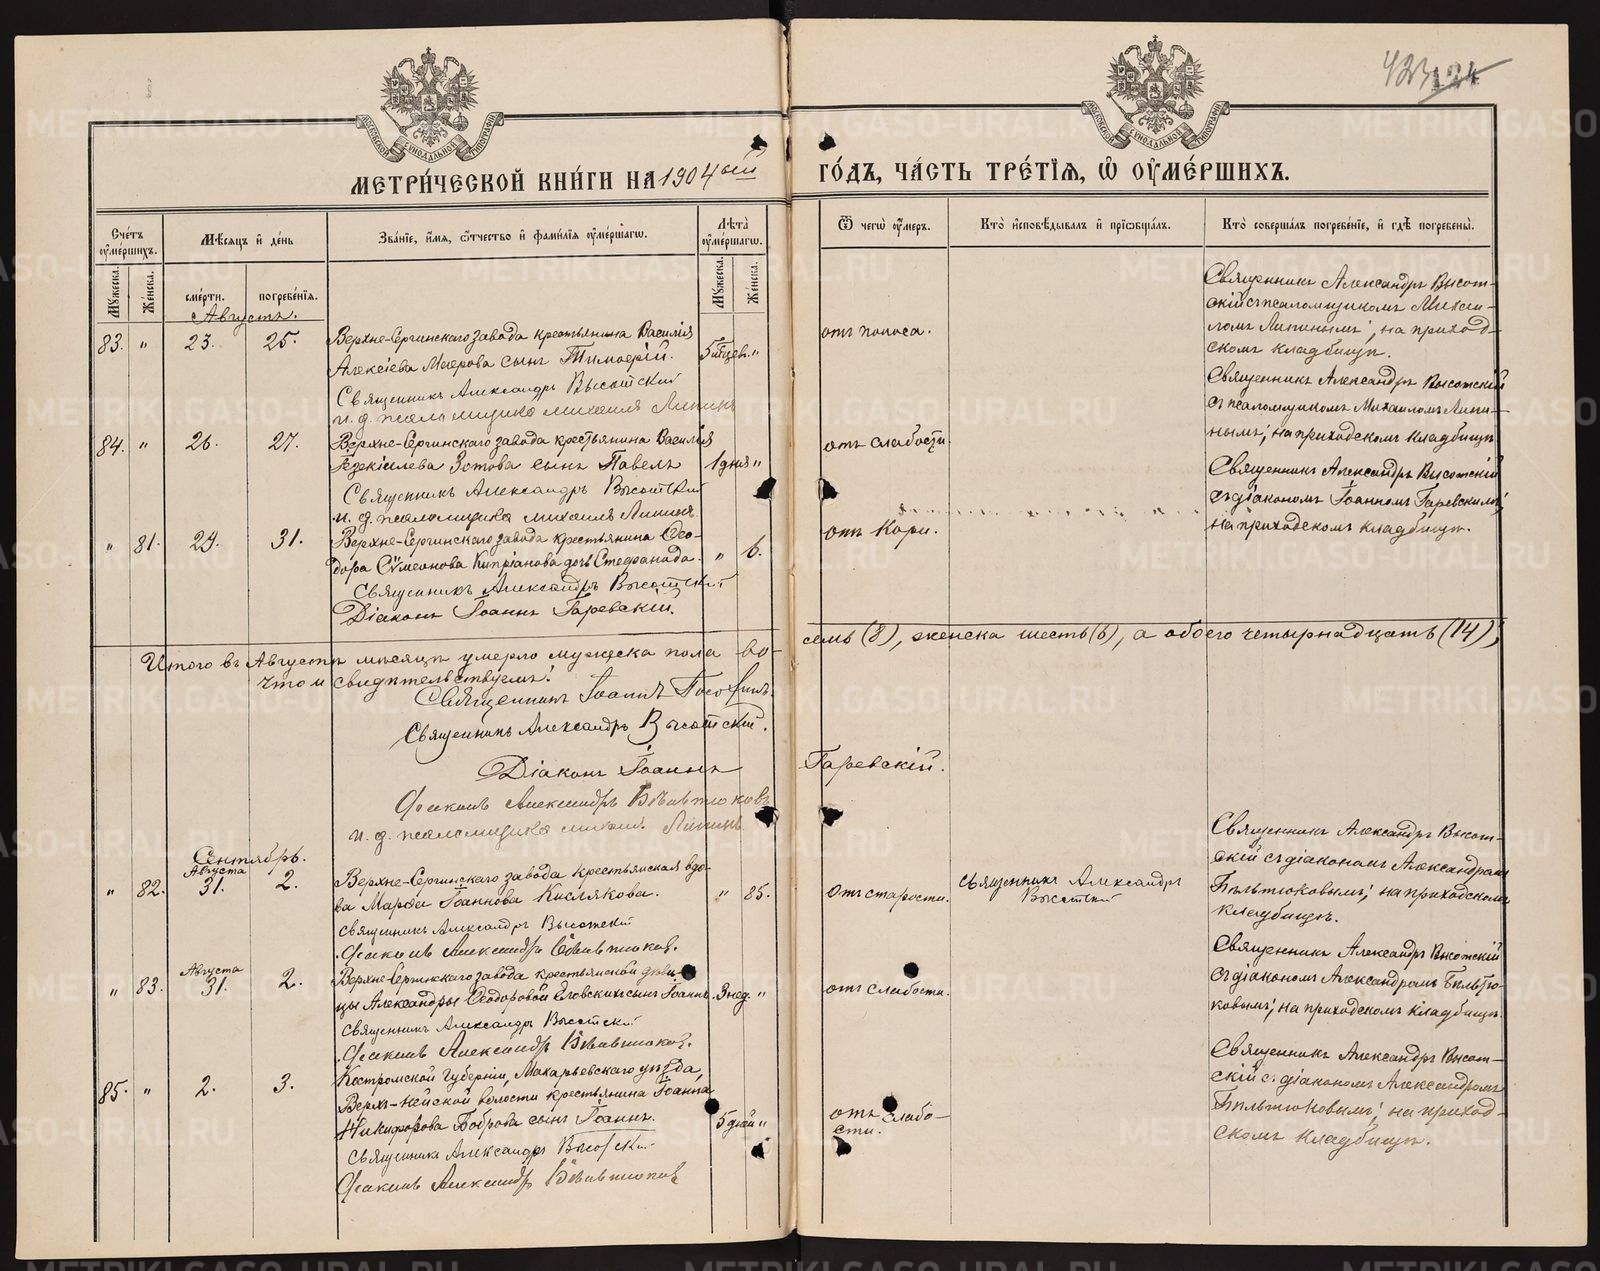 423 124
МЕТРИ́ЧЕСКОЙ КНИ́ГИ НА 1904ый ГО́ДЪ, ЧА́СТЬ ТРЕ́ТІѦ, Ѡ҆ ОУ҆МЕ́РШИХЪ.
Сче́тъ оу҆ме́ршихъ.
Мꙋ́жеска.
Же́нска.
Мѣ́сѧцъ и҆ де́нь
сме́рти.
погребе́нїѧ.
Зва́нїе, и҆́мѧ, ѻ҆́тчество и҆ фами́лїѧ оу҆ме́ршагѡ.
Лѣта̀ оу҆ме́ршагѡ.
Мꙋ́жеска.
Же́нска.
Ѿ чегѡ̀ оу҆́меръ.
Кто̀ и҆сповѣ́дывалъ и҆ прїѡбща́лъ.
Кто̀ соверша́лъ погребе́нїе, и҆ гдѣ̀ погребены̀.
Августъ.
83. " 23. 25.
Верхне-Сергинскаго завода крестьянина Василія
Алексіева сынъ Тимоѳей.
Священникъ Александръ Высотскій
и. д. псаломщика Михаилъ Липинъ
отъ поноса.
Священникъ Александръ Высот-
скій съ псаломщикомъ Михаи-
ломъ Липинымъ; на приход-
скомъ кладбищѣ.
84. " 26. 27.
Верхне-Сергинскаго завода крестьянина Василія
Іезекіилева Зотова сынъ Павелъ
1 дня "
Священникъ Александръ Высотскій
и. д. псаломщика Михаилъ Липинъ
отъ слабости.
Священникъ Александръ Высотскій
съ псаломщикомъ Михаиломъ Липи-
нымъ; на приходскомъ кладбищѣ
" 81. 29. 31.
Верхне-Сергинскаго завода крестьянина Ѳео-
дора Сѵмеонова Кипріанова дочь Стефанида.
" 6.
Священникъ Александръ Высотскій
Діаконъ Іоаннъ Гаревскій.
отъ Кори.
Священникъ Александръ Высотскій
съ діакономъ Іоанномъ Гаревскимъ;
на приходскомъ кладбищѣ.
Итого въ Августѣ мѣсяцѣ умерло мужеска пола во-
семь (8), женска шесть (6), а обоего четырнадцать (14);
Что и свидѣтельствуемъ:
Священникъ Іоаннъ
Священникъ Александръ Высотскій.
Діаконъ Іоаннъ Гаревскій.
Діаконъ Александръ Бѣльтюковъ
и. д. псаломщика Михаилъ Липинъ
Сентябрь.
" 82. Августа 31. 2.
Верхне-Сергинскаго завода крестьянская вдо-
ва Марѳа Іоаннова Кислякова.
" 85.
Священникъ Александръ Высотскій
Діаконъ Александръ Бѣльтюковъ.
Отъ старости.
Священникъ Александръ
Высотскій
Священникъ Александръ Высот-
скій съ діакономъ Александромъ
Бѣльтюковымъ; на приходскомъ
кладбищѣ.
" 83. Августа 31. 2.
Верхне-Сергинскаго завода крестьянской дѣви-
цы Александры Ѳеодоровой сынъ Іоаннъ.
3 нед. "
Священникъ Александръ Высотскій
Діаконъ Александръ Бѣльтюковъ.
отъ слабости.
Священникъ Александръ Высотскій
съ діакономъ Александромъ Бѣльтю-
ковымъ; на приходскомъ кладбищѣ.
85. " 2. 3.
Костромской губерніи, Макарьевскаго уѣзда,
Верхъ-Нейской волости крестьянина Іоанна
Никифорова Боброва сынъ Іоаннъ.
5 дней "
Священникъ Александръ Высотскій
Діаконъ Александръ Бѣльтюковъ
отъ слабо-
сти.
Священникъ Александръ Высот-
скій съ діакономъ Александромъ
Бѣльтюковымъ; на приход-
скомъ кладбищѣ.
METRIKI.GASO-URAL.RU